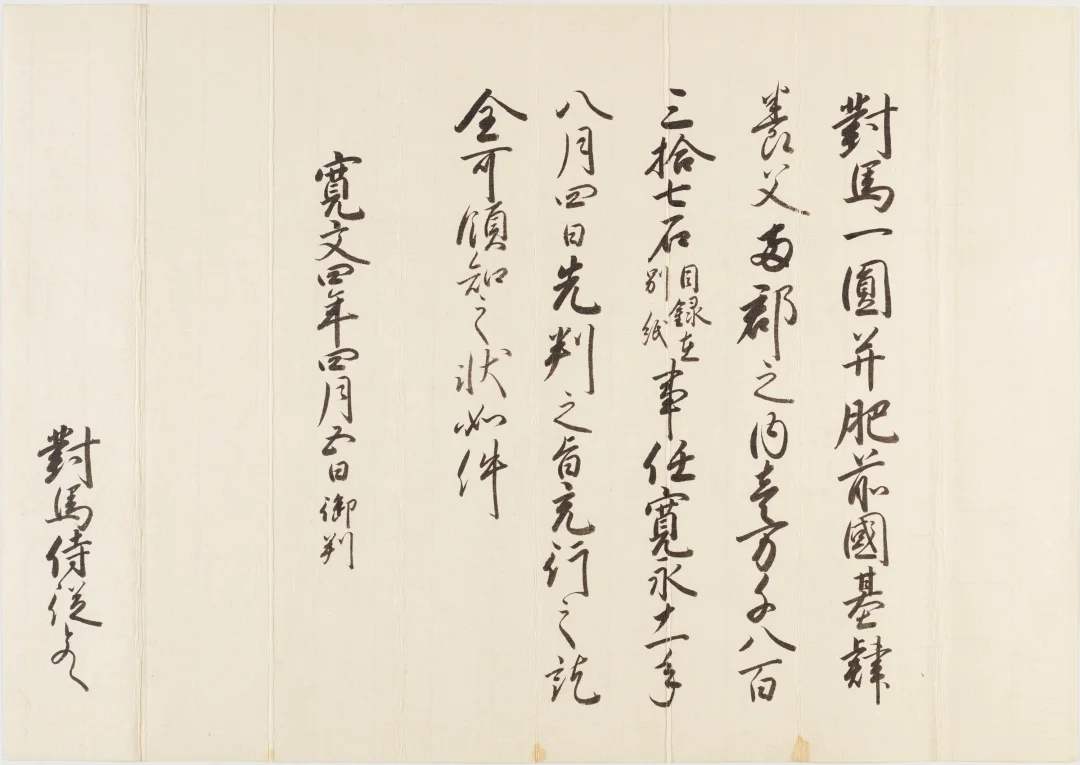 對馬一圓并肥前國基肄
養父両郡之内壱万千八百
三拾七石目録在別紙事任寛永十一年
八月四日先判之旨充行之訖
全可領知之状如件
寛文四年四月五日御判
對馬侍従とのへ